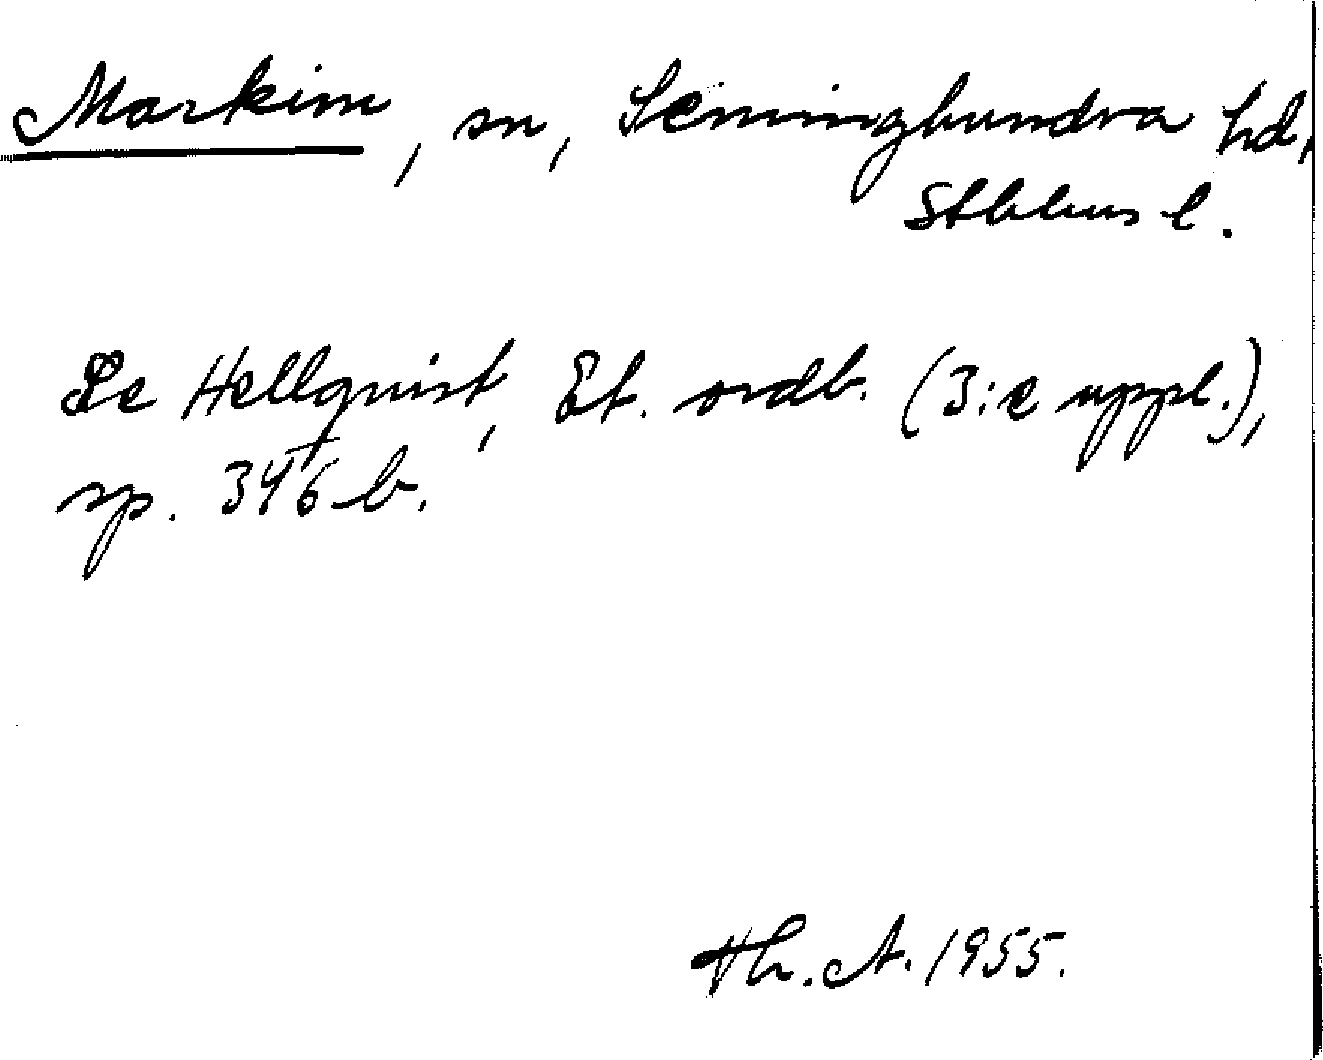 Markim, sn, Seminghundra hd,
Sthlms l.
Se Hellquist, Et. ordb. (3:e uppl.),
sp. 346 b.
Th. A. 1955.